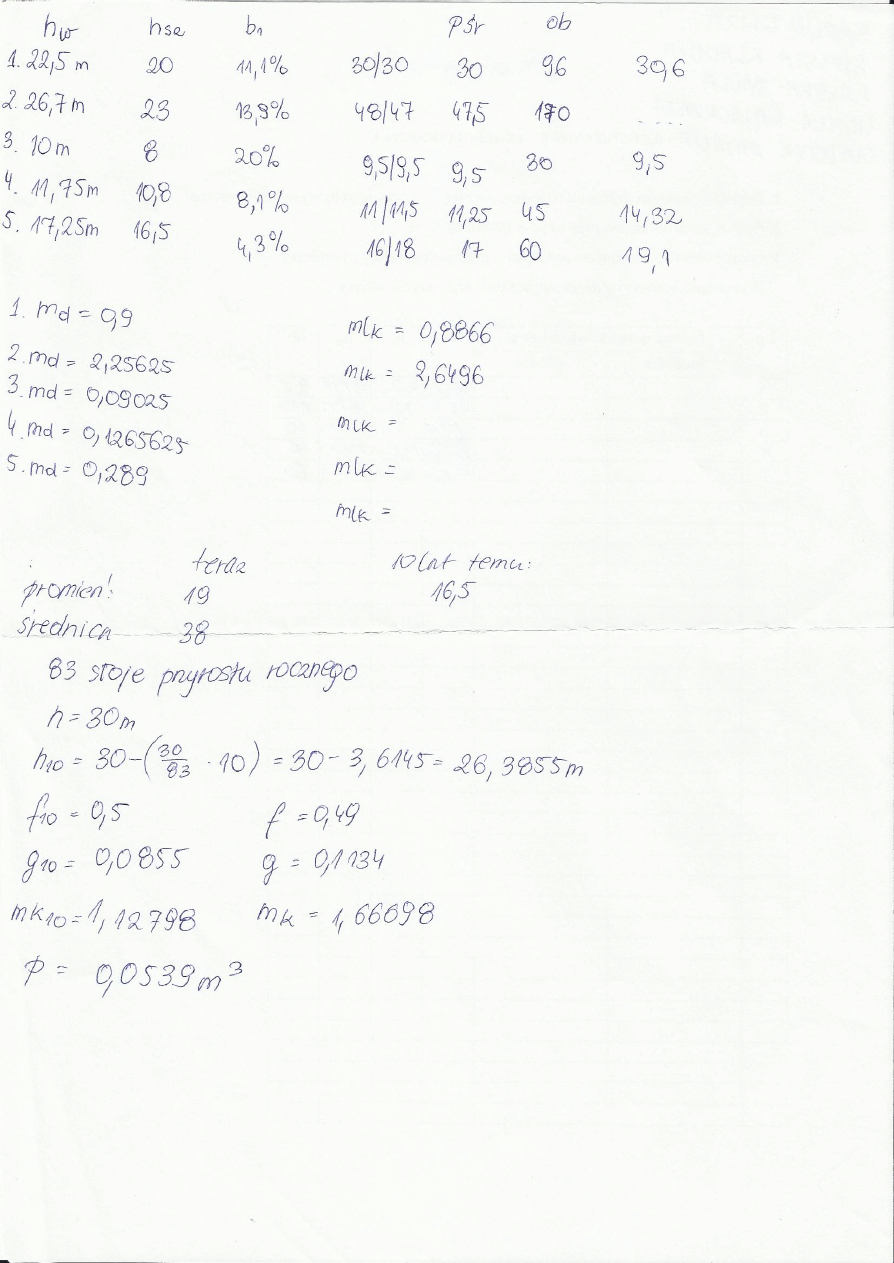 hw hsr b1 pśr ob
1. 22,5 m 20 11,1% 30/30 30 96 30,6
2. 26,7 m 23 13,9% 48/47 47,5 170 ....
3. 10 m 8 20% 9,5/9,5 9,5 30 9,5
4. 11,75 m 10,8 8,1% 11/11,5 11,25 45 14,32
5. 17,25 m 16,5 4,3% 16/18 17 60 19,1
1. md = 0,9 mlk = 0,8866
2. md = 2,25625 mlk = 2,6496
3. md = 0,09025 mlk =
4. md = 0,1265625 mlk =
5. md = 0,289 mlk =
teraz 10 lat temu:
promień: 19 16,5
średnica 38
83 słoje przyrostu rocznego
h = 30 m
h10 = 30 - (30/83 · 10) = 30 - 3,6145 = 26,3855 m
f10 = 0,5 f = 0,49
g10 = 0,0855 g = 0,1134
mk10 = 1,12798 mk = 1,66698
p = 0,0539 m³